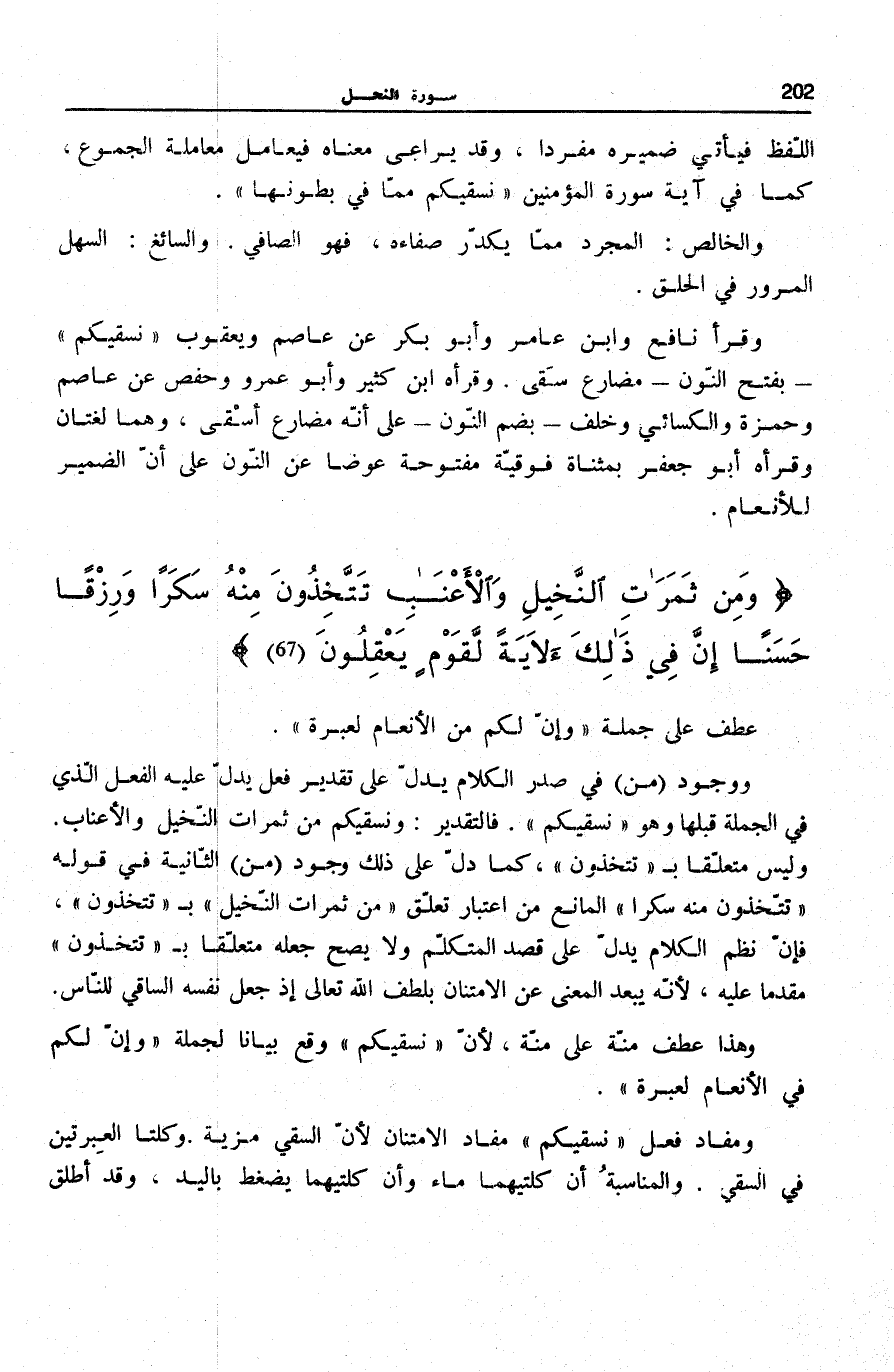 202
سورة النحل
اللّفظ فيأتي ضميره مفردا ، وقد يراعى معناه فيعامل معاملة الجموع ،
كما في آية سورة المؤمنين « نسقيكم ممّا في بطونها » .
والخالص : المجرد ممّا يكدّر صفاءه ، فهو الصافي . والسائغ : السهل
المرور في الحلق .
وقرأ نافع وابن عامر وأبو بكر عن عاصم ويعقوب « نسقيكم »
– بفتح النّون – مضارع سقى . وقرأه ابن كثير وأبو عمرو وحفص عن عاصم
وحمزة والكسائي وخلف – بضم النّون – على أنّه مضارع أسْقى ، وهما لغتان
وقرأه أبو جعفر بمثناة فوقيّة مفتوحة عوضا عن النّون على أنّ الضمير
للأنعام .
﴿ وَمِن ثَمَرَٰتِ ٱلنَّخِيلِ وَٱلْأَعْنَـٰبِ تَتَّخِذُونَ مِنْهُ سَكَرًا وَرِزْقًا
حَسَنًا إِنَّ فِي ذَٰلِكَ ءَلَايَةً لَّقَوْمٍ يَعْقِلُونَ (67) ﴾
عطف على جملة « وإنّ لكم من الأنعام لعبرة » .
ووجود (من) في صدر الكلام يدلّ على تقدير فعل يدلّ عليه الفعل الّذي
في الجملة قبلها وهو « نسقيكم » . فالتقدير : ونسقيكم من ثمرات النّخيل والأعناب.
وليس متعلّقا بـ « تتخذون » ، كما دلّ على ذلك وجود (من) الثّانية في قوله
« تتّخذون منه سكرا » المانع من اعتبار تعلّق « من ثمرات النّخيل » بـ « تتخذون » ،
فإنّ نظم الكلام يدلّ على قصد المتكلّم ولا يصح جعله متعلّقا بـ « تتخذون »
مقدما عليه ، لأنّه يبعد المعنى عن الامتنان بلطف الله تعالى إذ جعل نفسه الساقي للنّاس.
وهذا عطف منّة على منّة ، لأنّ « نسقيكم » وقع بيانا لجملة « وإنّ لكم
في الأنعام لعبرة » .
ومفاد فعل « نسقيكم » مفاد الامتنان لأنّ السقي مزية .وكلتا العبرتين
في السقي . والمناسبةُ أن كلتيهما ماء وأن كلتيهما يضغط باليد ، وقد أطلق